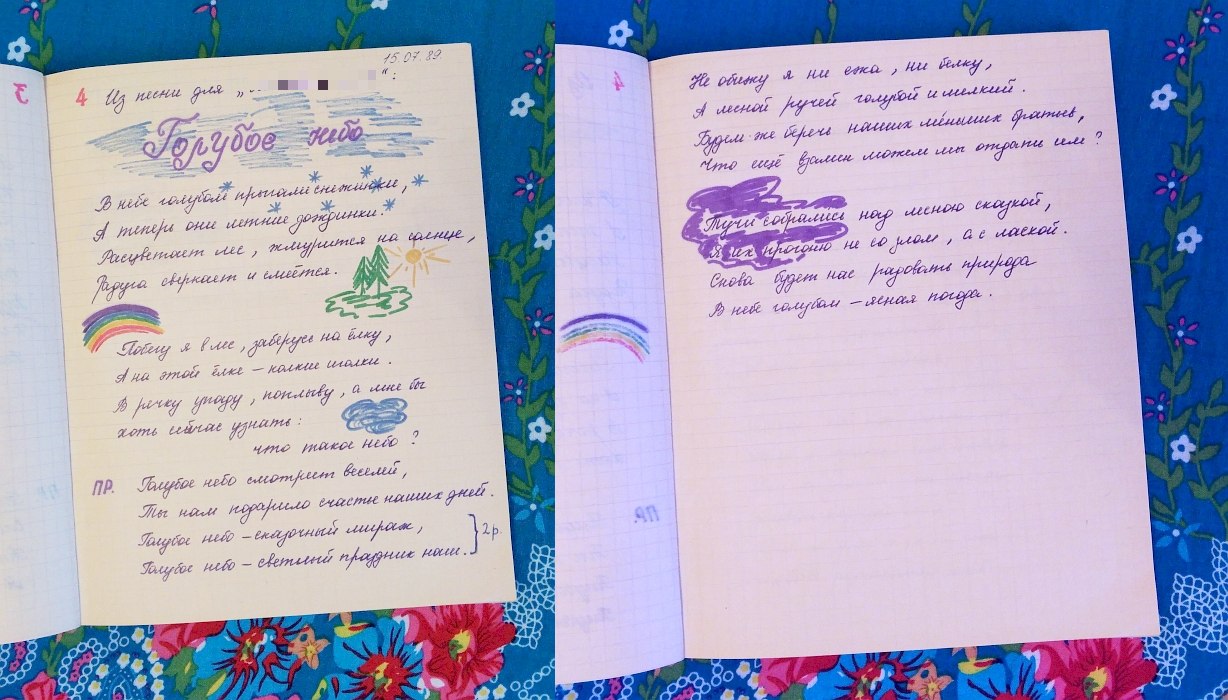 15.07.89.
4
Из песни для „.. “:
Голубое небо
В небе голубом прыгали снежинки,
А теперь они летние дождинки.
Расцветает лес, жмурится на солнце,
Радуга сверкает и смеётся.
Побегу я в лес, заберусь на ёлку,
А на этой ёлке – колкие иголки.
В речку упаду, поплыву, а мне бы
хоть сейчас узнать:
что такое небо?
ПР.
Голубое небо смотрит веселей,
Ты нам подарило счастье наших дней.
Голубое небо – сказочный мираж,
Голубое небо – светлый праздник наш.
2 р.
3
Не обижу я ни ежа, ни белку,
А лесной ручей голубой и мелкий.
Будем же беречь наших ме́ньших братьев,
Что ещё взамен можем мы отдать им?
Тучи собрались над лесною сказкой,
Я их прогоню не со злом, а с лаской.
Снова будет нас радовать природа
В небе голубом – ясная погода.
4
ПР.